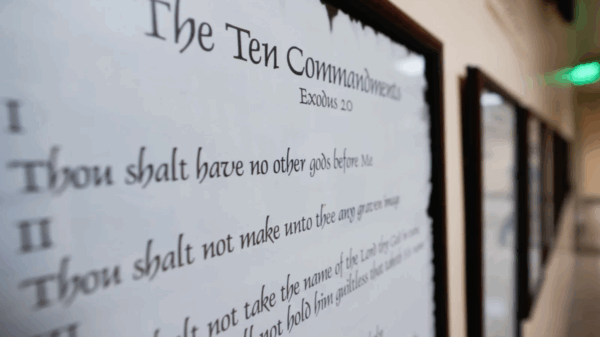 The Ten Commandments
Exodus 20
I
Thou shalt have no other gods before Me
II
Thou shalt not make unto thee any graven image
III
shalt not take the name of the Lord thy God in
not hold him guiltless that taketh